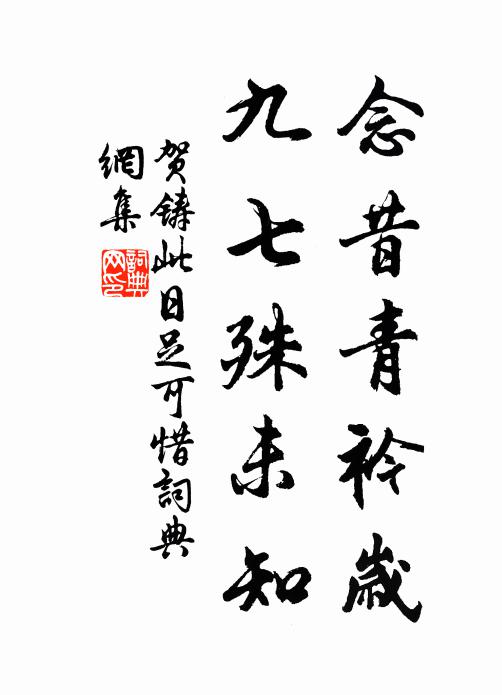 念昔青衿歲
九七殊未知
賀鑄此日足可惜詞典
網集
詞典
网印